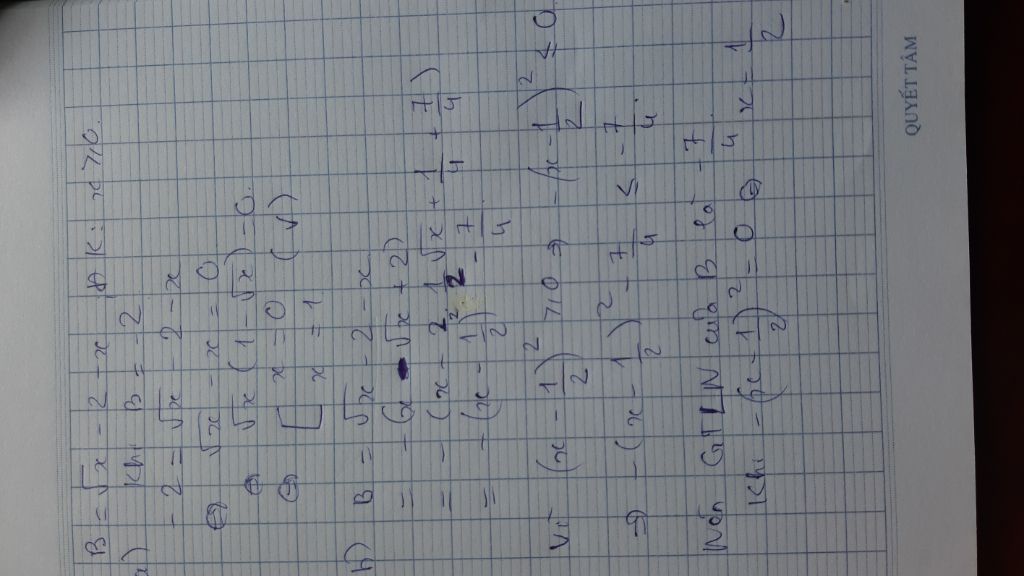 B = √x - 2 - x ĐK: x ≥ 0.
a) Khi B = -2
-2 = √x - 2 - x
⇔ √x - x = 0
⇔ √x (1 - √x) = 0.
⇔ [ x = 0
x = 1 (v)
b) B = √x - 2 - x
= -(x - √x + 2)
= -(x - 2 1/2 √x + 1/4 + 7/4)
= -(x - 1/2)² - 7/4.
Vì (x - 1/2)² ≥ 0 ⇒ -(x - 1/2)² ≤ 0
⇒ -(x - 1/2)² - 7/4 ≤ -7/4.
Nên GTLN của B là -7/4
Khi -(x - 1/2)² = 0 ⇔ x = 1/2
QUYẾT TÂM